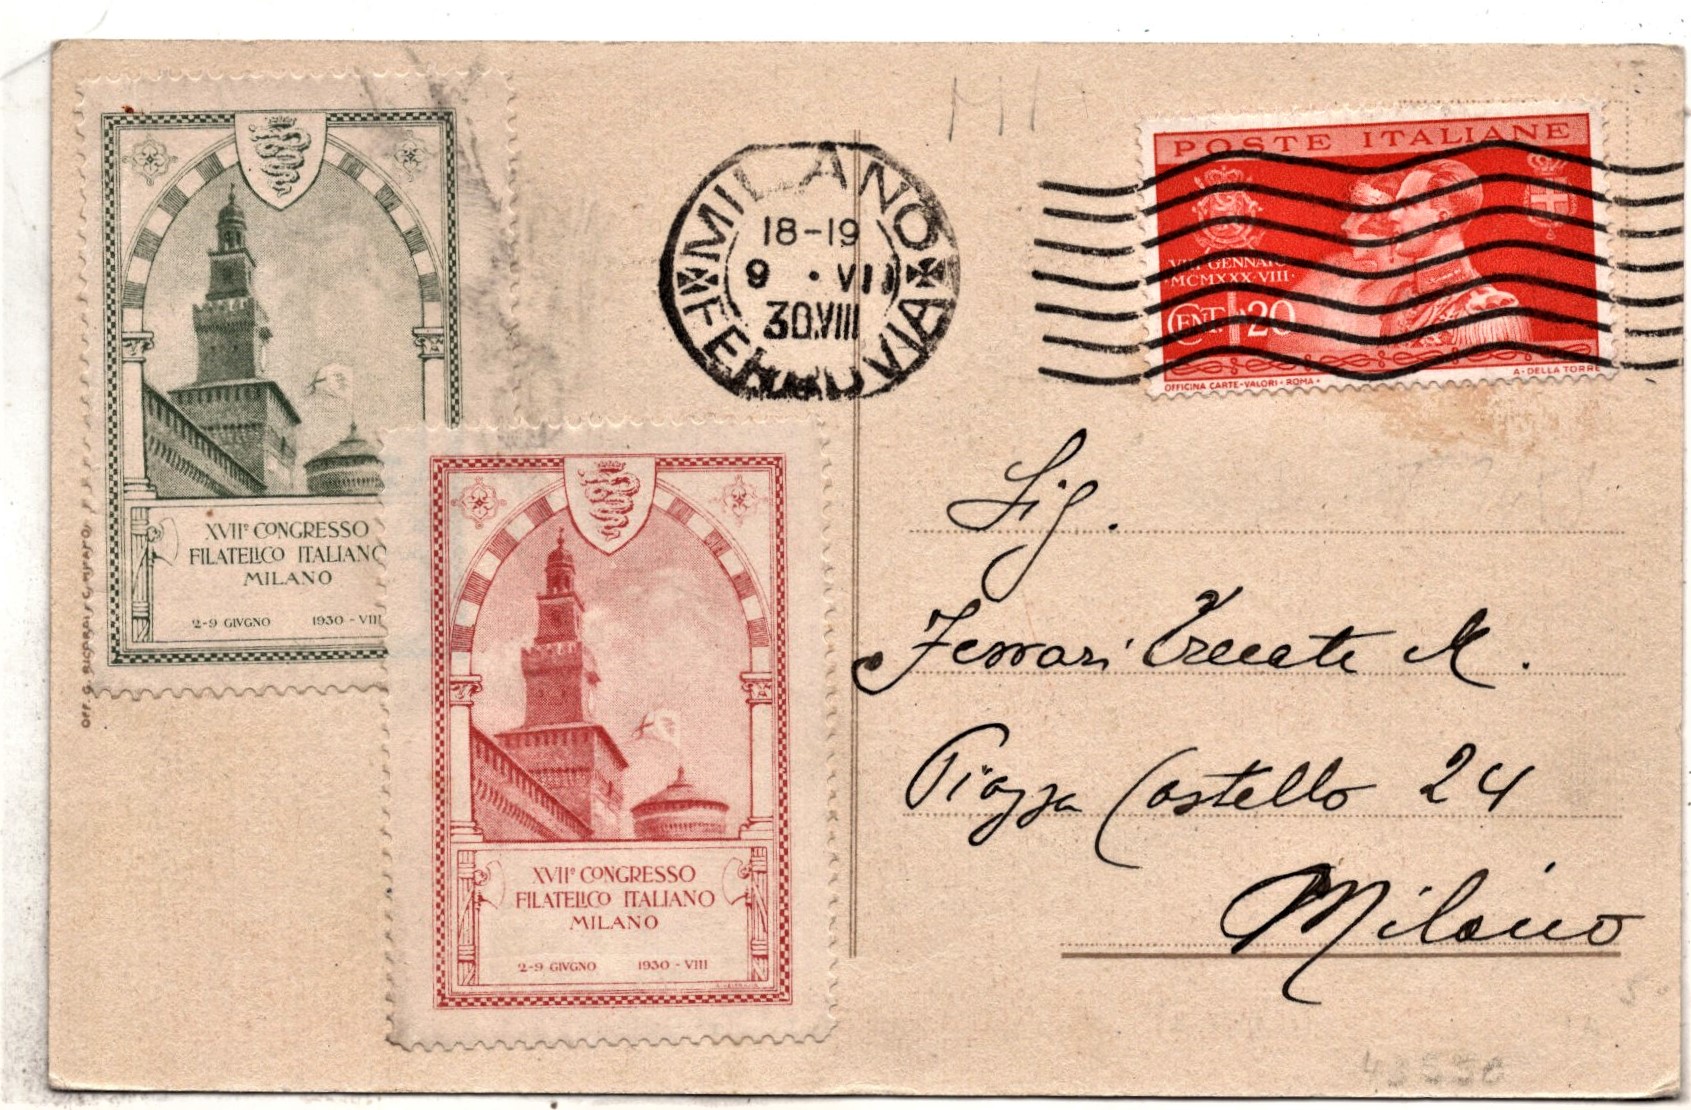 XVIIº CONGRESSO
FILATELICO ITALIANO
MILANO
2-9 GIVGNO 1930 - VIII
OFF. G. RICORDI & C. MILANO
XVIIº CONGRESSO
FILATELICO ITALIANO
MILANO
2-9 GIVGNO 1930 - VIII
MILANO
18-19
9 · VII
30.VIII
FERROVIA
POSTE ITALIANE
VIII GENNAIO
·MCMXXX·VIII·
CENT. 20
OFFICINA CARTE-VALORI-ROMA·
A·DELLA TORRE
Sig.
Ferrari Trecate M.
Piazza Castello 24
Milano